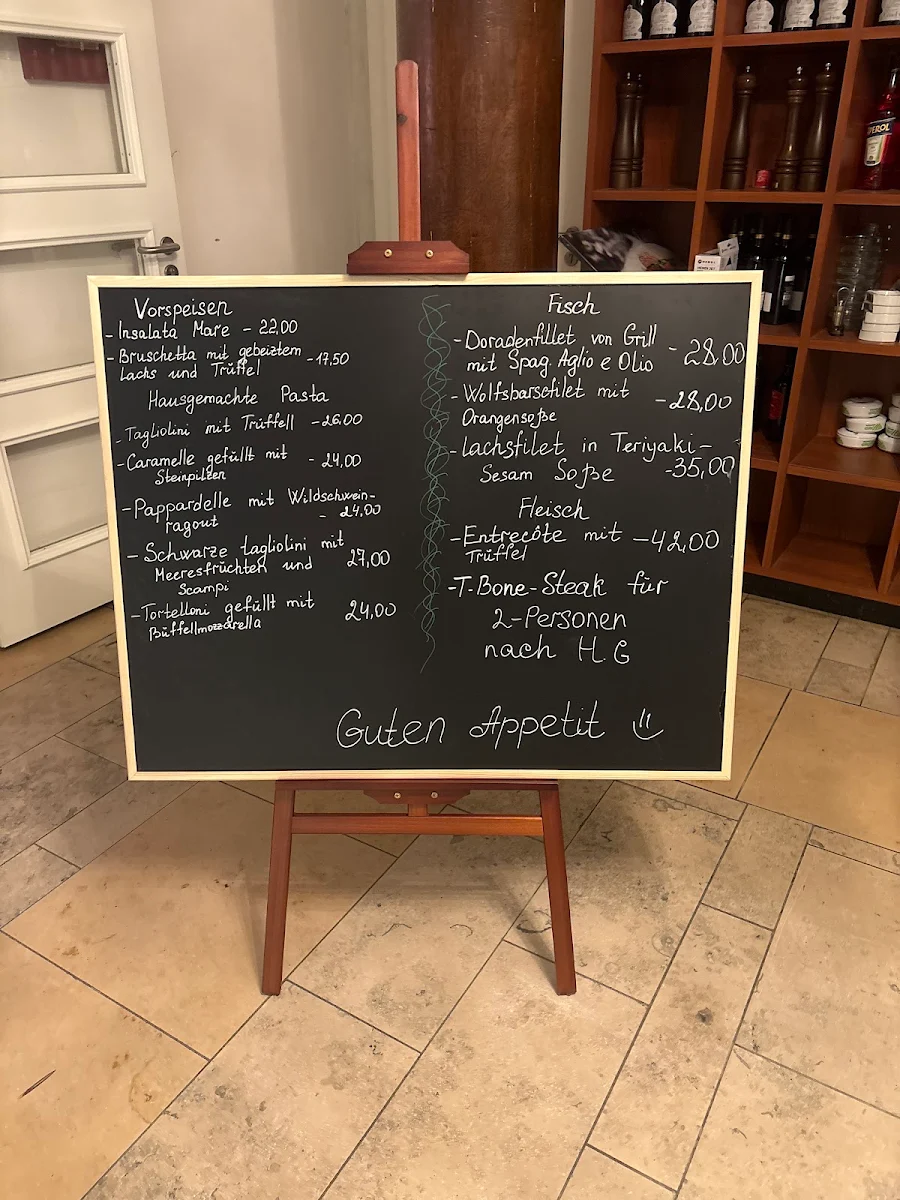 Vorspeisen
- Insalata Mare - 22,00
- Bruschetta mit gebeiztem - 17,50
Lachs und Trüffel
Hausgemachte Pasta
- Tagliolini mit Trüffell - 26,00
- Caramelle gefüllt mit - 24,00
Steinpilzen
- Pappardelle mit Wildschwein-
ragout - 24,00
- Schwarze tagliolini mit
Meeresfrüchten und 27,00
Scampi
- Tortelloni gefüllt mit 24,00
Büffelmozzarella
Fisch
- Doradenfillet von Grill
mit Spag. Aglio e Olio - 28,00
- Wolfsbarschfilet mit - 28,00
Orangensoße
- Lachsfilet in Teriyaki-
Sesam Soße - 35,00
Fleisch
- Entrecôte mit - 42,00
Trüffel
- T-Bone-Steak für
2-Personen
nach H G
Guten Appetit
APEROL